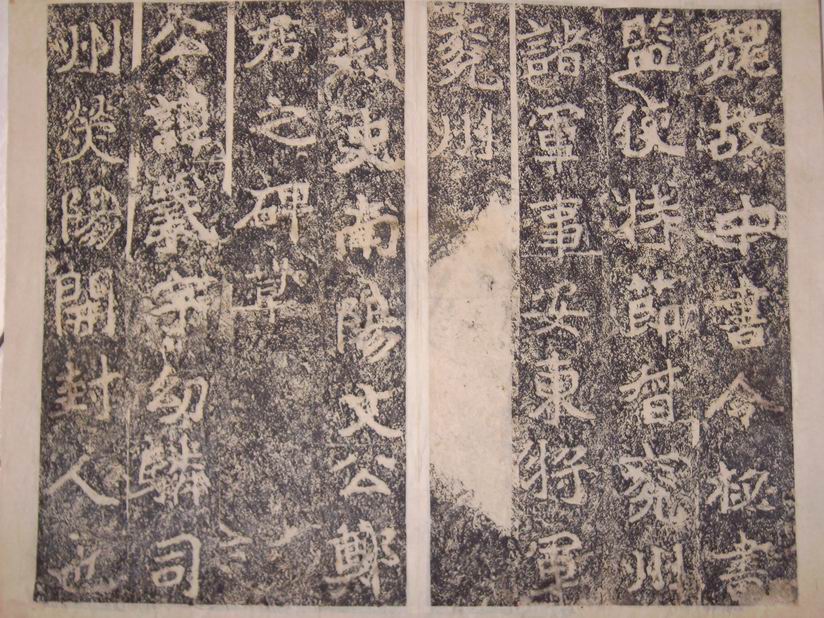 魏故中書令秘書
監使持節督兗州
諸軍事安東將軍
兗州
刺史南陽文公鄭
君之碑草
公諱羲字幼驎司
州熒陽開封人也